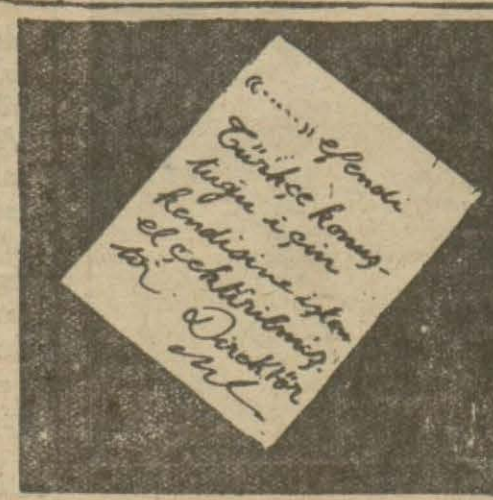 “......„ efendi
Türkçe konuş-
tuğu için
kendisine işten
el çektirilmiş-
tir. Direktör